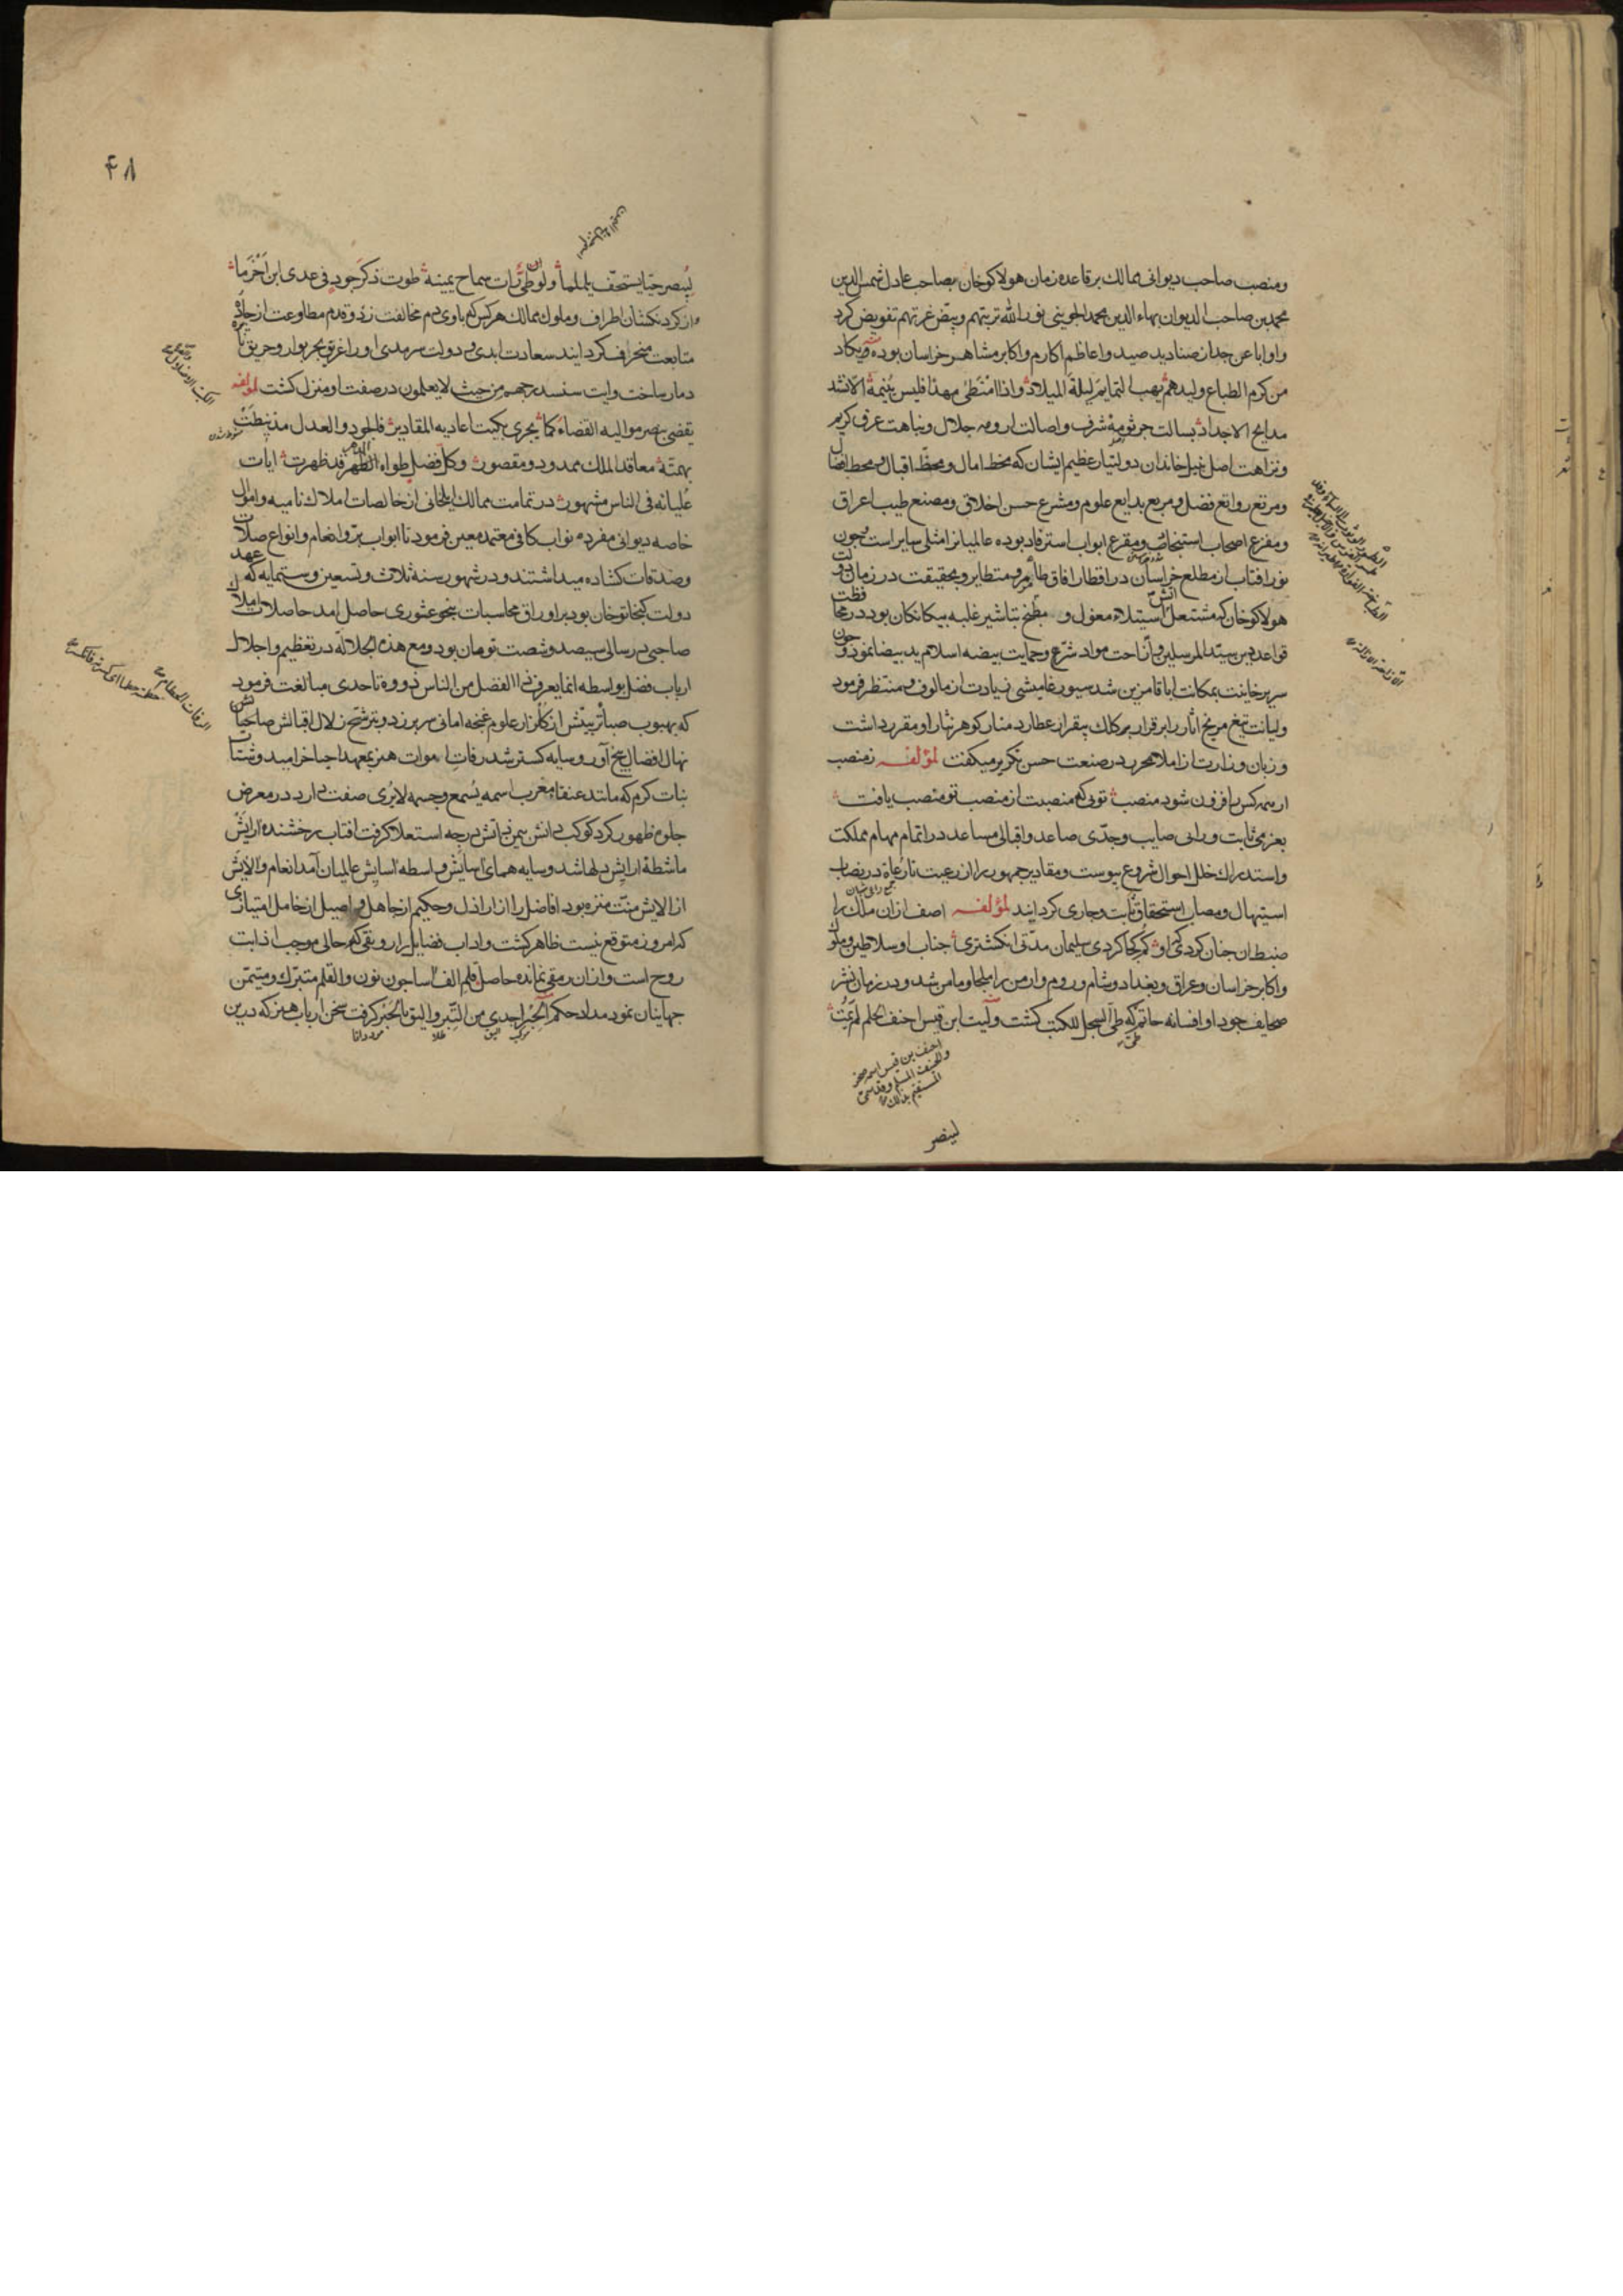 ومنصب صاحب دیوانی ممالک برقاعده زمان هولاکوخان بصاحب عادل شمس الدین
محمد بن صاحب الدیوان بهاء الدین محمد الجوینی نور الله تربتهم وبیض غرتهم تفویض کرد
واو اباعن جد از صنادید صید واعاظم اکارم واکابر مشاهیر خراسان بوده ویکاد
من کرم الطباع ولیدهم یهب التمایم لیلة المیلاد واذا امتطی مهدا فلیس ینیمه الا نشد
مدایح الاجداد بسالت جرثومه شرف واصالت ارومه جلال ونباهت عرق کریم
ونزاهت اصل خاندان دولتیار عظیم ایشان که مخط امال ومحط اقبال
ومرتع روایع فضل ومربع بدایع علوم ومشرع حسن اخلاق ومصنع طیب اعراق
ومفزع اصحاب استنجاح ومقرع ابواب استرفاد بوده عالمیانرا مثلی سایر است چون
نور افتاب از مطلع خراسان در اقطار افاق طایر ومتطایر وبحقیقت در زمان دولت
هولاکوخان که مشتعل اتش استیلاء مغول و مطبخ تباشیر غلبه بیکانکان بود در محافظت
قواعد دین سید المرسلین وازاحت مواد شرع وحمایت بیضه اسلام ید بیضا نمود وچون
سریر خانیت بمکانت اباقا مزین شد سیورغامیشی زیادت از مالوف ومنتظر فرمود
ولیانت تیغ مریخ اثار را برقرار کلک بیقرار عطارد منار کوهر نثار او مقرر داشت
وزبان وزارت از املا محرر در صنعت حسن تکریر میکفت لمؤلفه زمنصب
ار همه کس را فزون شود منصب تویی که منصبت از منصب تو منصب یافت
بعزمی ثابت ورایی صایب وجدی صاعد واقبالی مساعد در اتمام مهام مملکت
واستدراک خلل احوال شروع پیوست ومقادیر جمهور را از رعیت تا رعاة در نصاب
استیهال ومصاب استحقاق ثابت وجاری کردانید لمؤلفه اصف ار ان ملک را
ضبط ان چنان کردی که او کم کجا کردی سلیمان مدتی انکشتری جناب او سلاطین وملوک
واکابر خراسان وعراق وبغداد وشام وروم وارمن را ملجا ومامن شد ودر زمان نشر
صحایف جود او افسانه حاتم که طی السجل للکتب کشت ولیت ابن قیس احنف الحلم لم یمت
احنف بن قیس اسمه صخر
لینصر
۴۸
لیبصر حیا یستخف یلملما ولو ان طی رات سماح یمینه طوت ذکر جود فی عدی ابن اخزما
واز کردنکشان اطراف وملوک ممالک هرکس که با وی دم مخالفت زد وقدم مطاوعت از جاده
متابعت منحرف کردانید سعادت ابدی ودولت سرمدی او را غریق بحر بوار وحریق نایره
دمار ساخت وایت سنستدرجهم من حیث لا یعلمون در صفت او منزل کشت لمؤلفه
یقضی بنصر موالیه القضاء کما یجری بکبت اعادیه المقادیر فالجود والعدل مذ نیطت
بهمته معاقد الملک ممدود ومقصور وکل فضل طواه الدهر قد ظهرت ایات
علیانه فی الناس مشهور در تمامت ممالک ایلخانی از خالصات املاک نامیه واموال
خاصه دیوانی مفرده نواب کافی معتمد معین فرمود تا ابواب بر وانعام وانواع صلات
وصدقات کشاده میداشتند ودر شهور سنه ثلاث وتسعین وستمایه که عهد
دولت کیخاتو خان بود بر اوراق محاسبات بنجو عثوری حاصل امد حاصلات املاک
صاحبی در سالی سیصد وشصت تومان بود ومع هذه الجلالة در تعظیم واجلال
ارباب فضل بواسطه انما یعرف ذا الفضل من الناس ذووه تا حدی مبالغت فرمود
که بهبوب صبا تربیتش از کلزار علوم غنچه امانی سر برزد وبترشح زلال اقبالش
نهال افضال بیخ آور وسایه کستر شد رفات اموات هنر بمعهد احیا خرامید وشتات
بنات کرم که مانند عنقاء مغرب اسمه یسمع وجسمه لا یری صفت دارد در معرض
جلوه ظهور کرد کوکب دانش بیمن درجه استعلا کرفت افتاب رخشنده ارایش
ماشطه ارایش دلها شد وسایه همای اسایش واسطه اسایش عالمیان آمد انعام والایش
از الایش منت منزه بود افاضل را از اراذل وحکیم از جاهل واصیل از خامل امتیازی
که امروز متوقع نیست ظاهر کشت واداب فضایل را رونقی که حالی موجب اذابت
روح است وازان رمقی نمانده حاصل قلم الف اسا چون نون والقلم متبرک ومتیمن
جهانیان نمود مداد حکم الحبر اجدی من التبر والیق بالحبر کرفت سخن ارباب هنر که درین